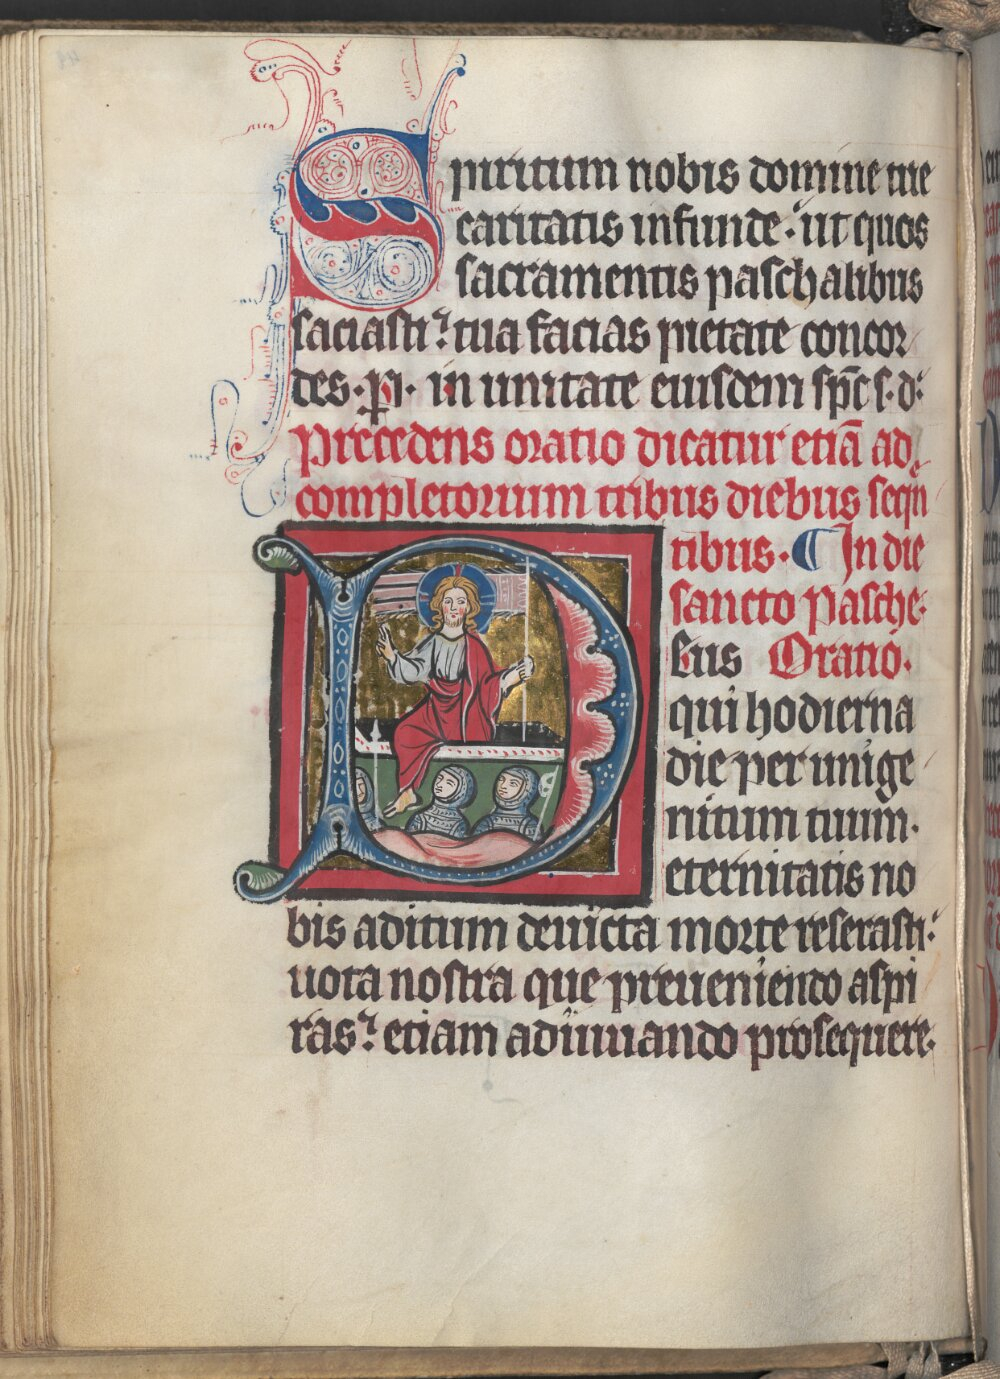 Spiritum nobis domine tue
caritatis infunde · ut quos
sacramentis paschalibus
saciasti : tua facias pietate concor
des · p · in unitate eiusdem spc s · d :
Precedens oratio dicatur etiā ad
completorium tribus diebus seqū
tibus · ¶ In die
sancto Pasche ·
Deus Oratio ·
qui hodierna
die per unige
nitum tuum ·
eternitatis no
bis aditum deuicta morte reserasti :
uota nostra que preueniendo aspi
ras : etiam adiuuando prosequere ·